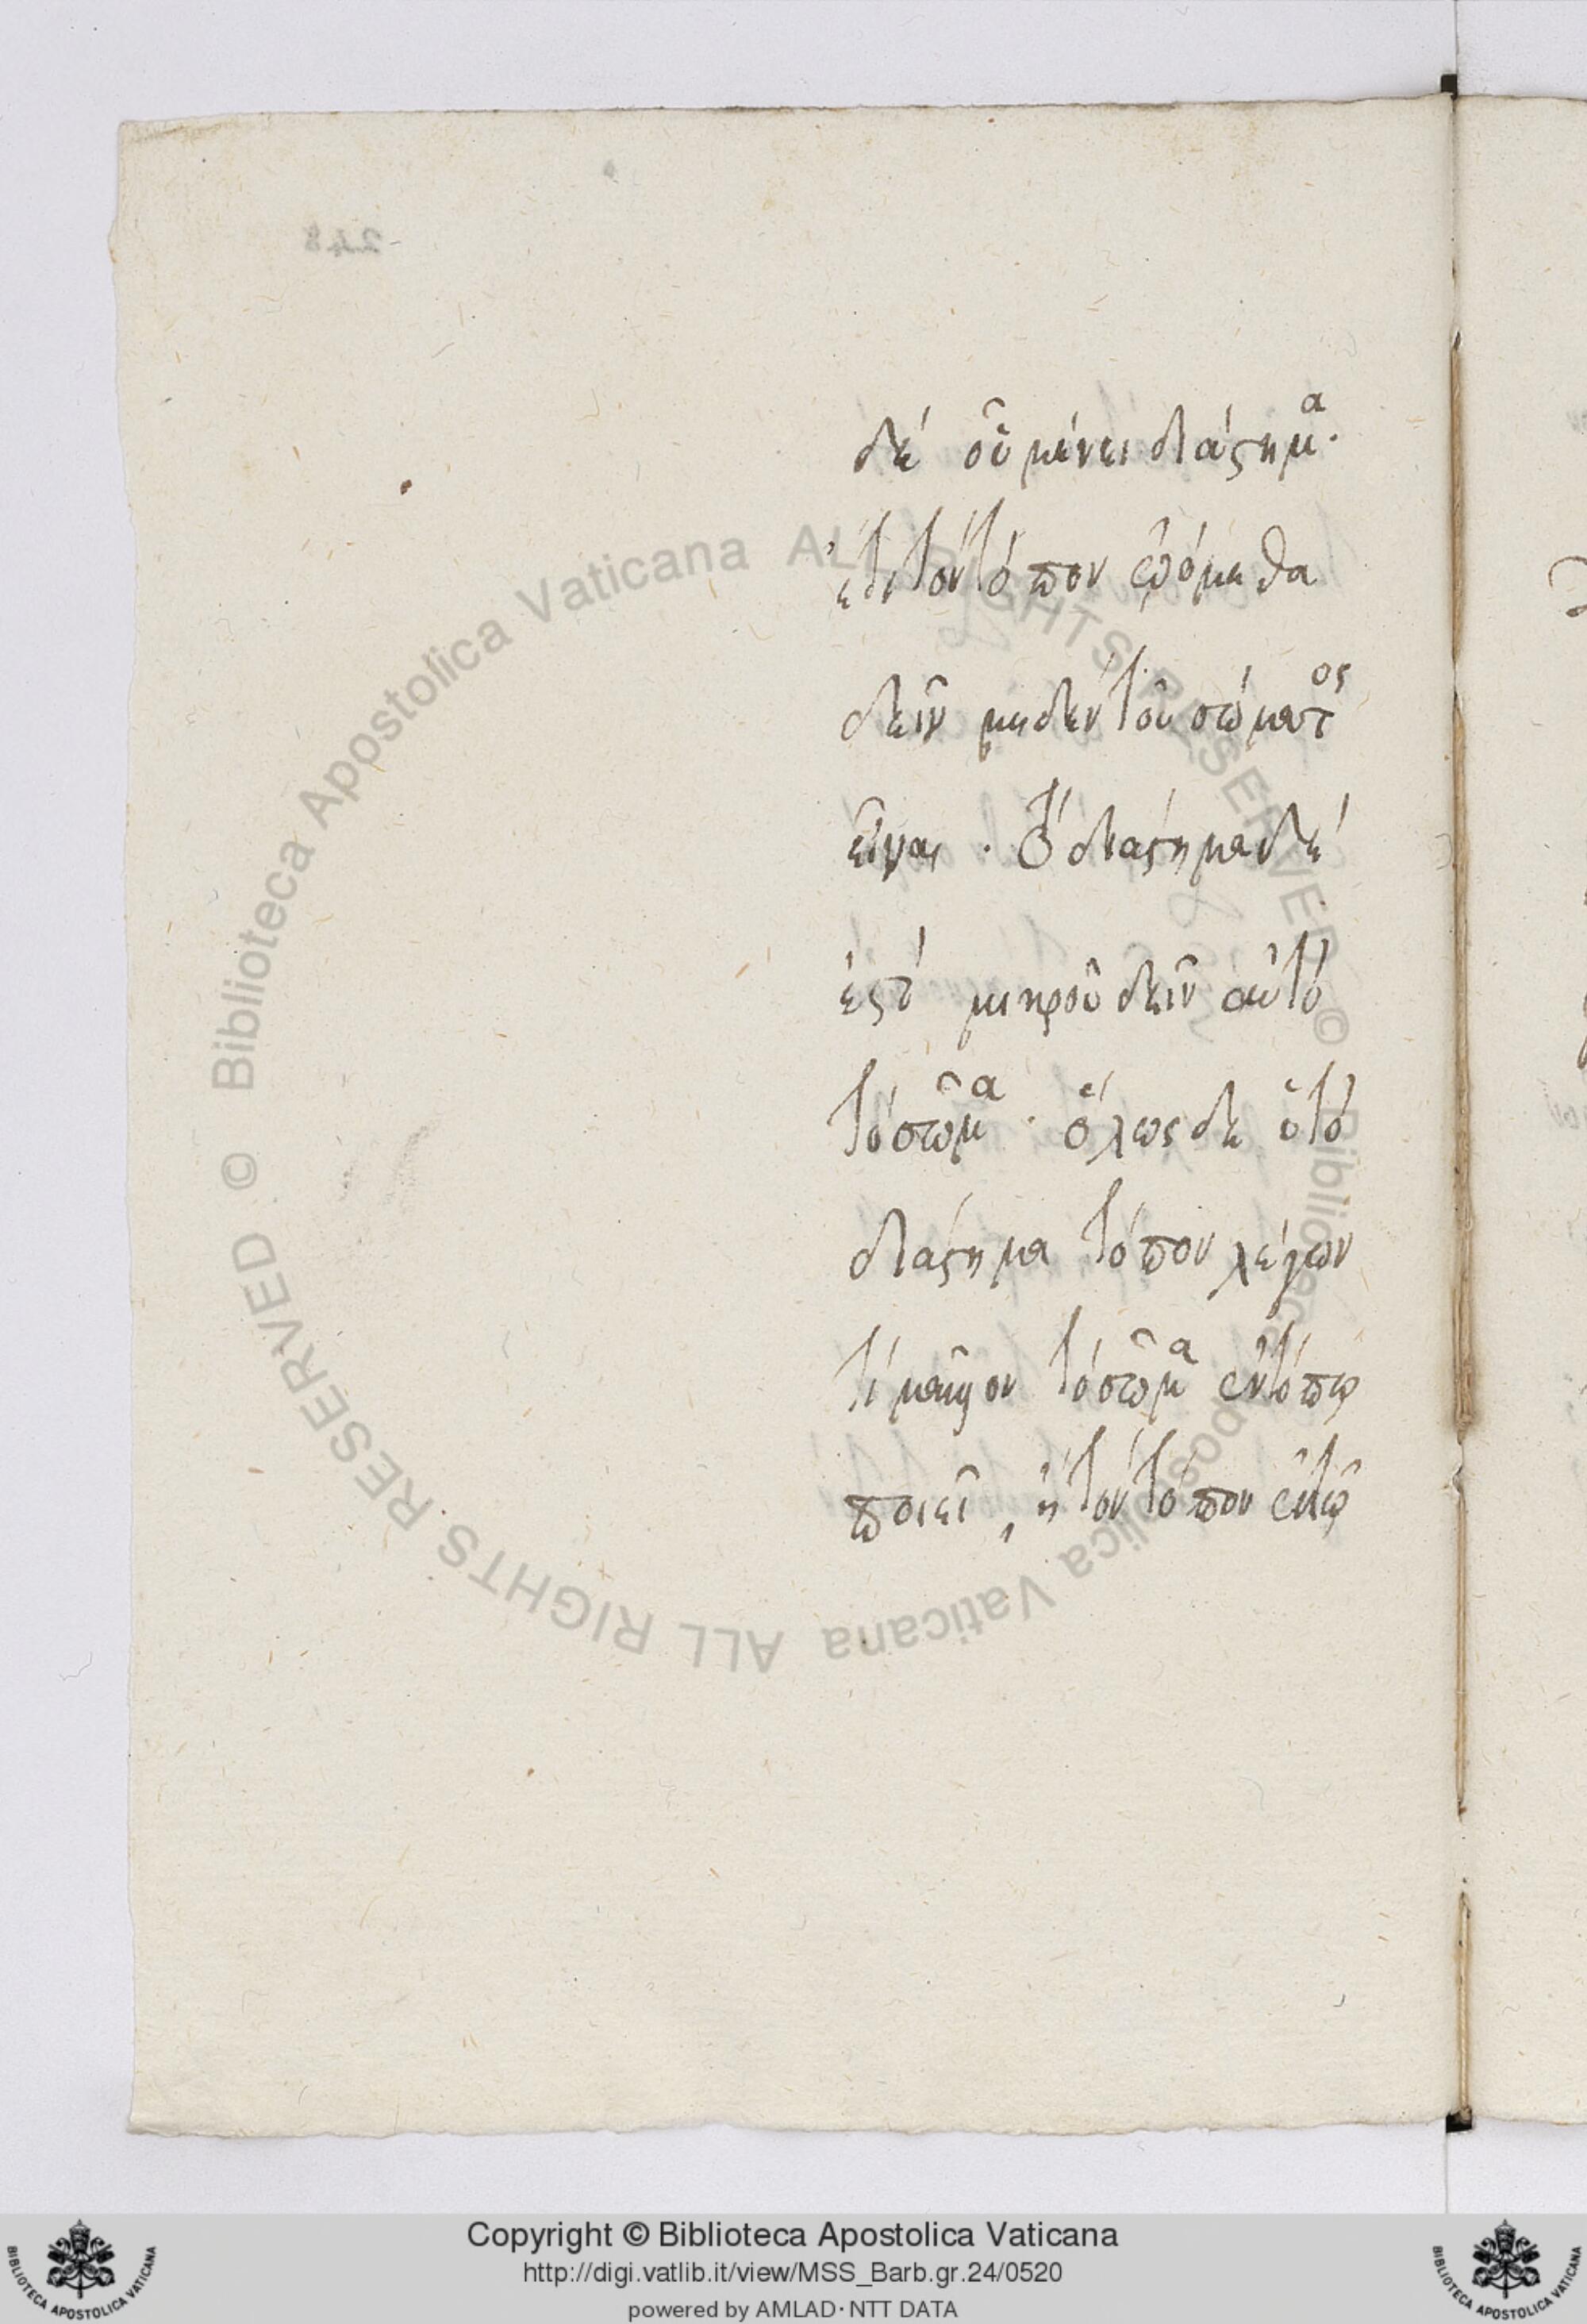 248
δέ οὐ μένει διάστημα.
ἔτι τόν τόπον ᾠόμεθα
δεῖν μηδέν τοῦ σώματος
εἶναι. τό διάστημα δέ
ἐστί μικροῦ δεῖν αὐτό
τό σῶμα. ὅλως δε ὁ τό
διάστημα τόπον λέγων
τί μᾶλλον τό σῶμα ἐν τόπῳ
ποιεῖ, ἤ τόν τόπον ἐν τῷ
© Biblioteca Apostolica Vaticana ALL RIGHTS RESERVED © Biblioteca Apostolica Vaticana ALL RIGHTS RESERVED
Copyright © Biblioteca Apostolica Vaticana
http://digi.vatlib.it/view/MSS_Barb.gr.24/0520
powered by AMLAD·NTT DATA
BIBLIOTECA APOSTOLICA VATICANA
BIBLIOTECA APOSTOLICA VATICANA